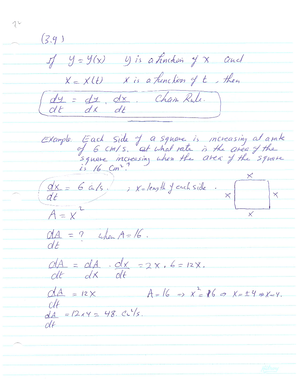 (3.9)
If y = y(x) y is a function of x and
x = x(t) x is a function of t, then
dy/dt = dy/dx · dx/dt Chain Rule.
Example: Each side of a square is increasing at a rate
of 6 cm/s. At what rate is the area of the
square increasing when the area of the square
is 16 cm²?
dx/dt = 6 cm/s. ; x = length of each side.
x
x x
x
A = x²
dA/dt = ? when A = 16.
dA/dt = dA/dx · dx/dt = 2x · 6 = 12x.
dA/dt = 12x A = 16 ⇒ x² = 16 ⇒ x = ±4 ⇒ x = 4.
dA/dt = 12 × 4 = 48 cm²/s.